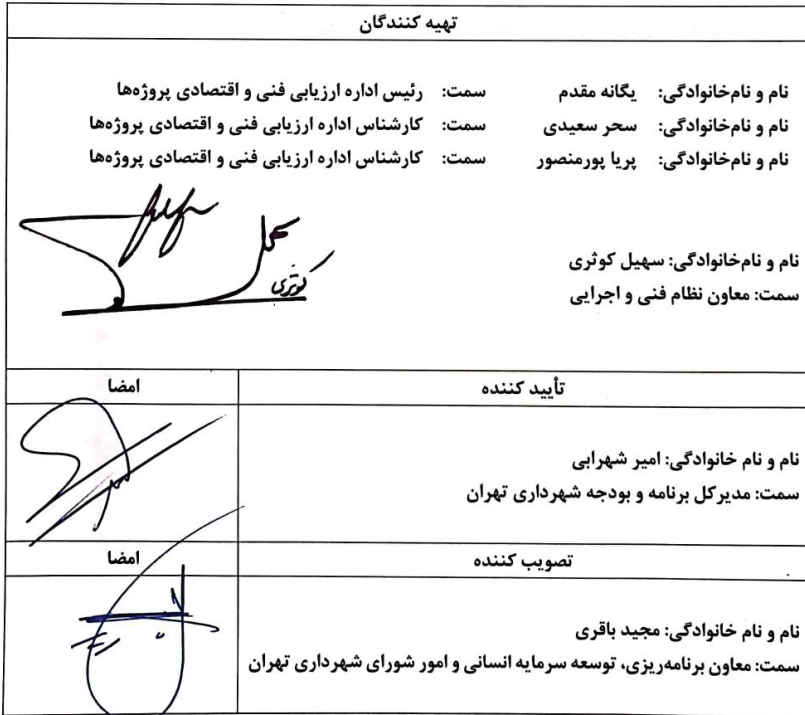 تهیه کنندگان
نام و نام‌خانوادگی: یگانه مقدم سمت: رئیس اداره ارزیابی فنی و اقتصادی پروژه‌ها
نام و نام‌خانوادگی: سحر سعیدی سمت: کارشناس اداره ارزیابی فنی و اقتصادی پروژه‌ها
نام و نام‌خانوادگی: پریا پورمنصور سمت: کارشناس اداره ارزیابی فنی و اقتصادی پروژه‌ها
نام و نام‌خانوادگی: سهیل کوثری
سمت: معاون نظام فنی و اجرایی
کوثری
تأیید کننده امضا
نام و نام خانوادگی: امیر شهرابی
سمت: مدیرکل برنامه و بودجه شهرداری تهران
تصویب کننده امضا
نام و نام خانوادگی: مجید باقری
سمت: معاون برنامه‌ریزی، توسعه سرمایه انسانی و امور شورای شهرداری تهران